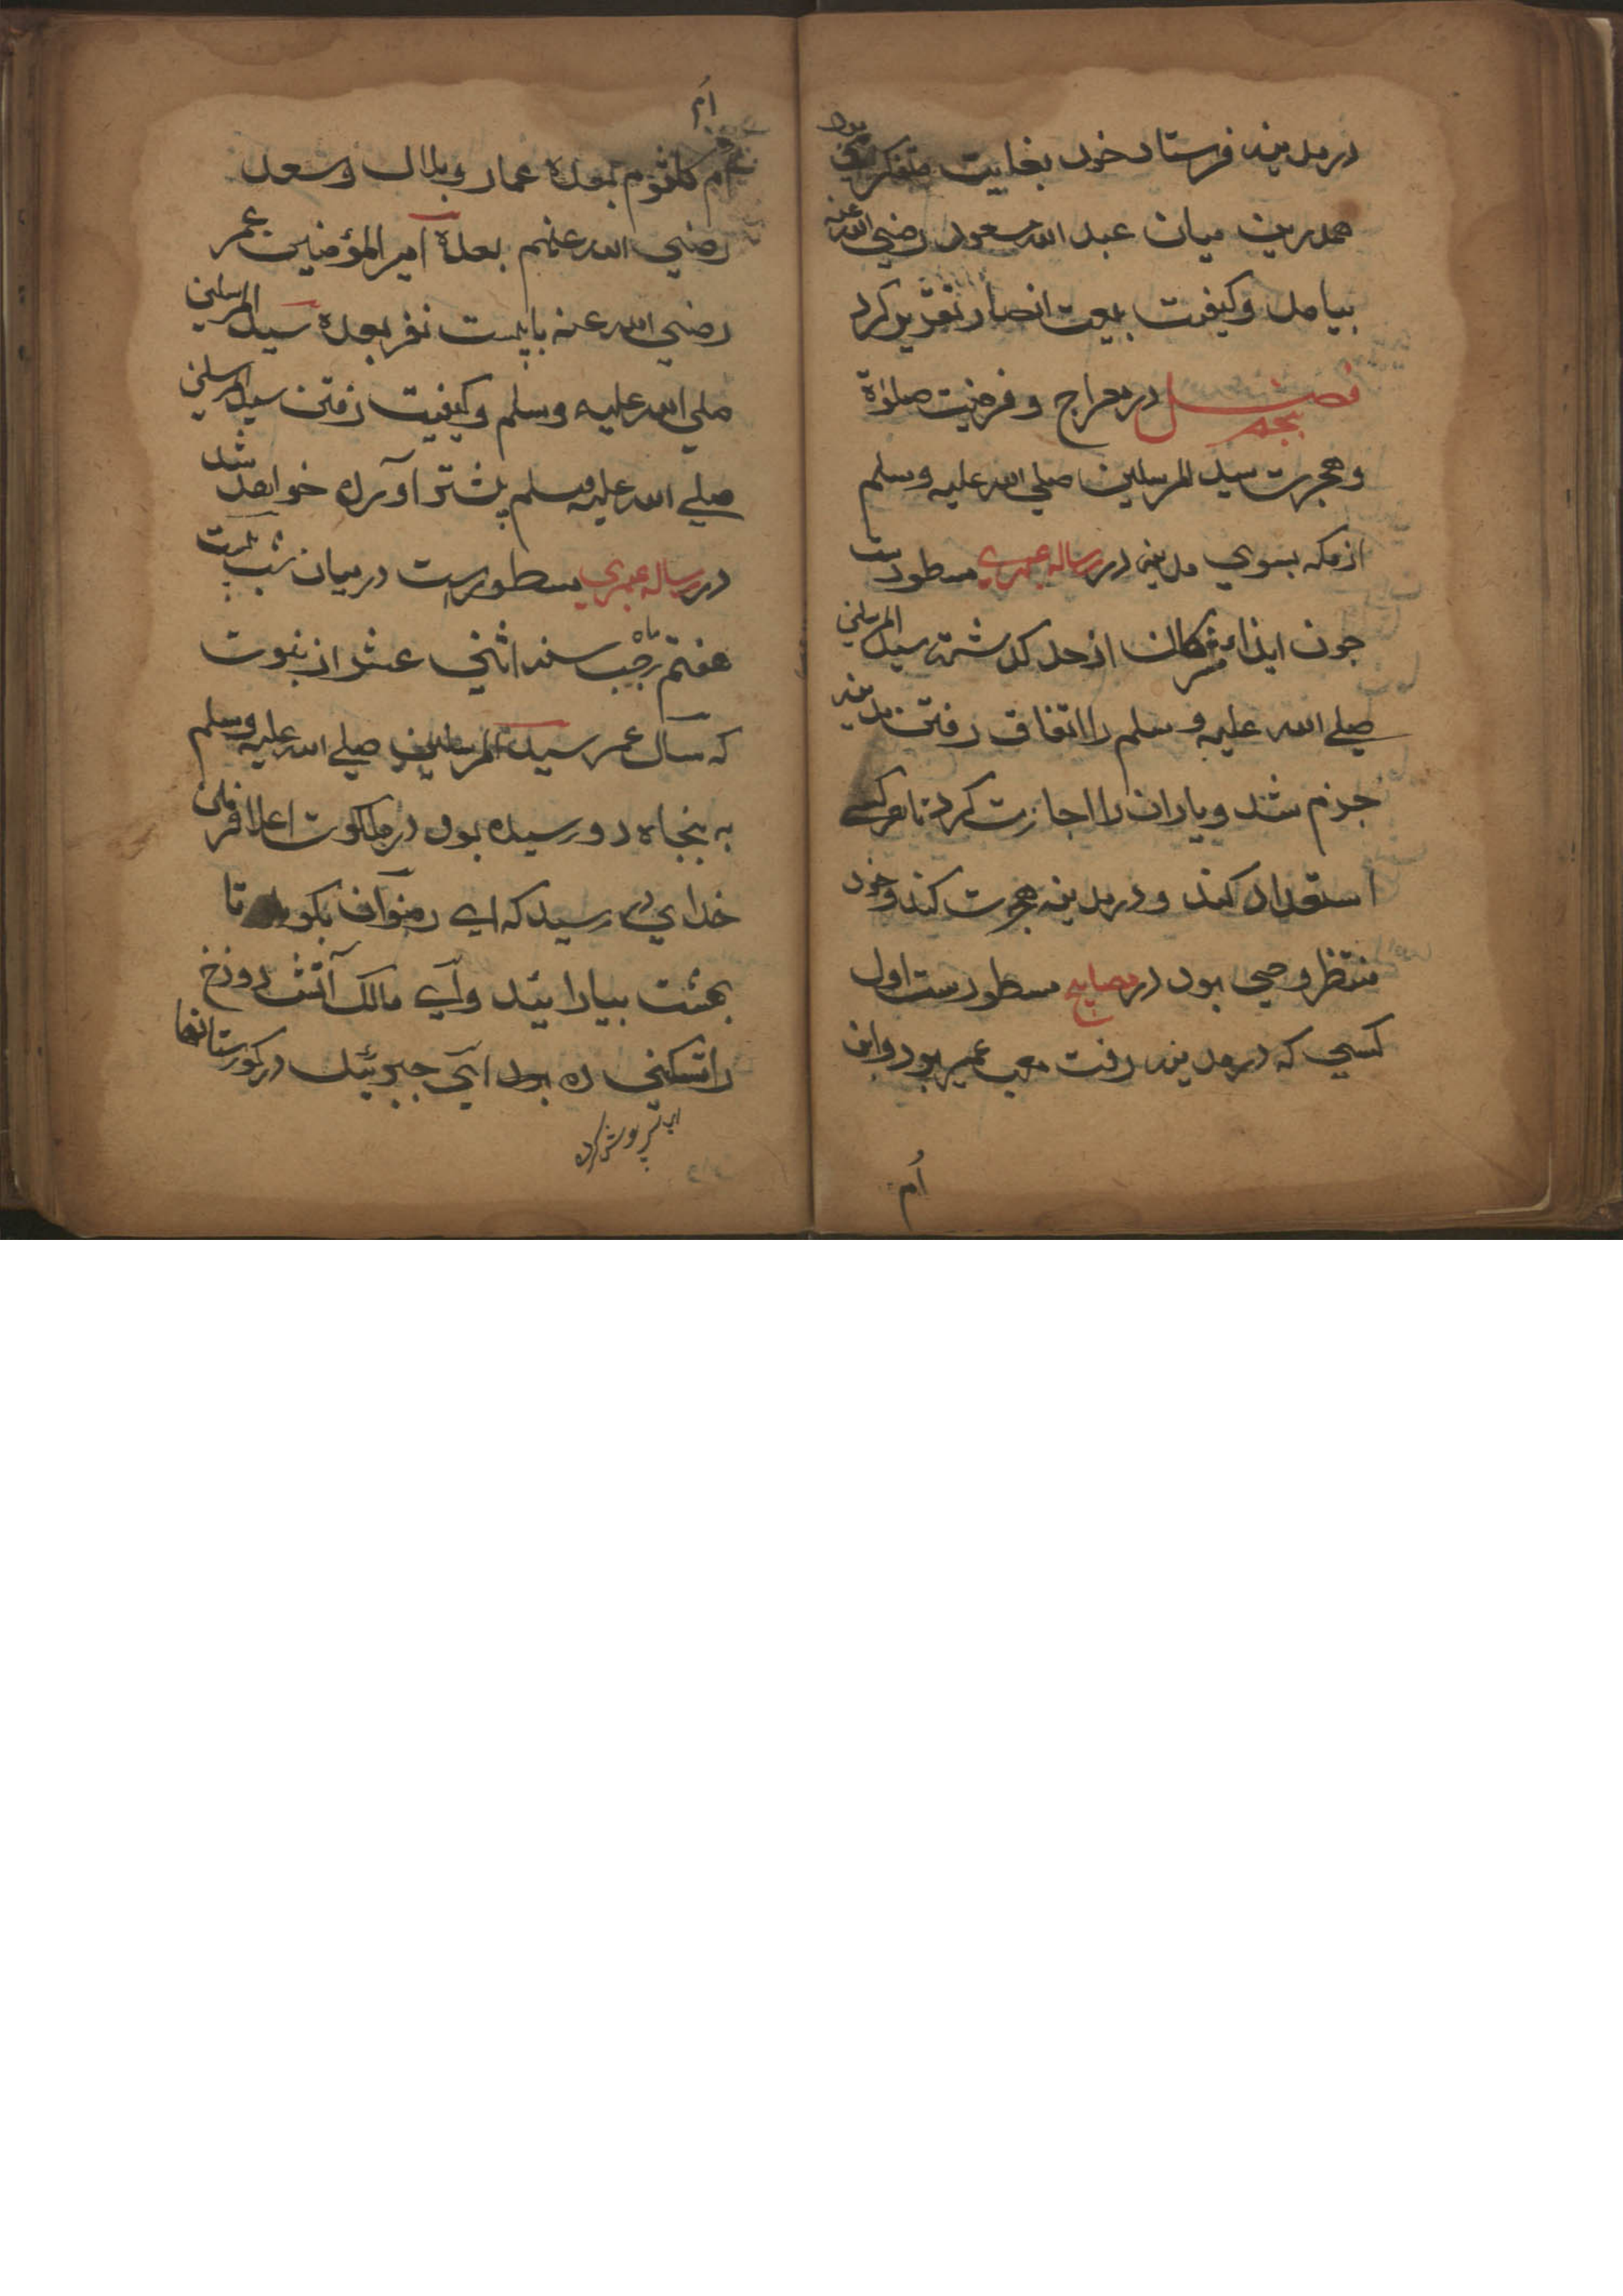 در مدینه فرستاد خود بغایت متفکر می بود
همدرین میان عبد الله مسعود رضی الله عنه
بیامد و کیفیت بیعت انصار تقریر کرد
فصل پنجم در معراج و فرضیت صلوٰة
و هجرت سید المرسلین صلی الله علیه وسلم
از مکه بسوی مدینه در رساله عبری مسطورست
چون ایذاء مشرکان از حد گذشته سید المرسلین
صلے الله علیه وسلم را اتفاق رفتن مدینه
جزم شد و یاران را اجازت کرد تا هر کسے
استعداد کنند و در مدینه هجرت کنند و خود
منتظر وحی بود در مصابیح مسطورست اول
کسی که در مدینه رفت مصعب عمیر بود و ابن
اُم
اُم
اُم کلثوم بعده عمار و بلال و سعد
رضی الله عنهم بعده امیر المؤمنین عمر
رضی الله عنه با بیست نفر بعده سید المرسلین
صلی الله علیه وسلم و کیفیت رفتن سید المرسلین
صلے الله علیه وسلم پیشتر آورده خواهد شد
در رساله عبری مسطورست در میان شب بیست
هفتم ماه رجب سنه اثنی عشر از نبوت
که سال عمر سید المرسلین صلے الله علیه وسلم
به پنجاه دو رسیده بود در ملکوت اعلا فرمان
خدای در رسید که اے رضوان بکو تا
بهشت بیارایند و اے مالک آتش دوزخ
را تسکنی ده بود ای جبرئیل در کورستانها